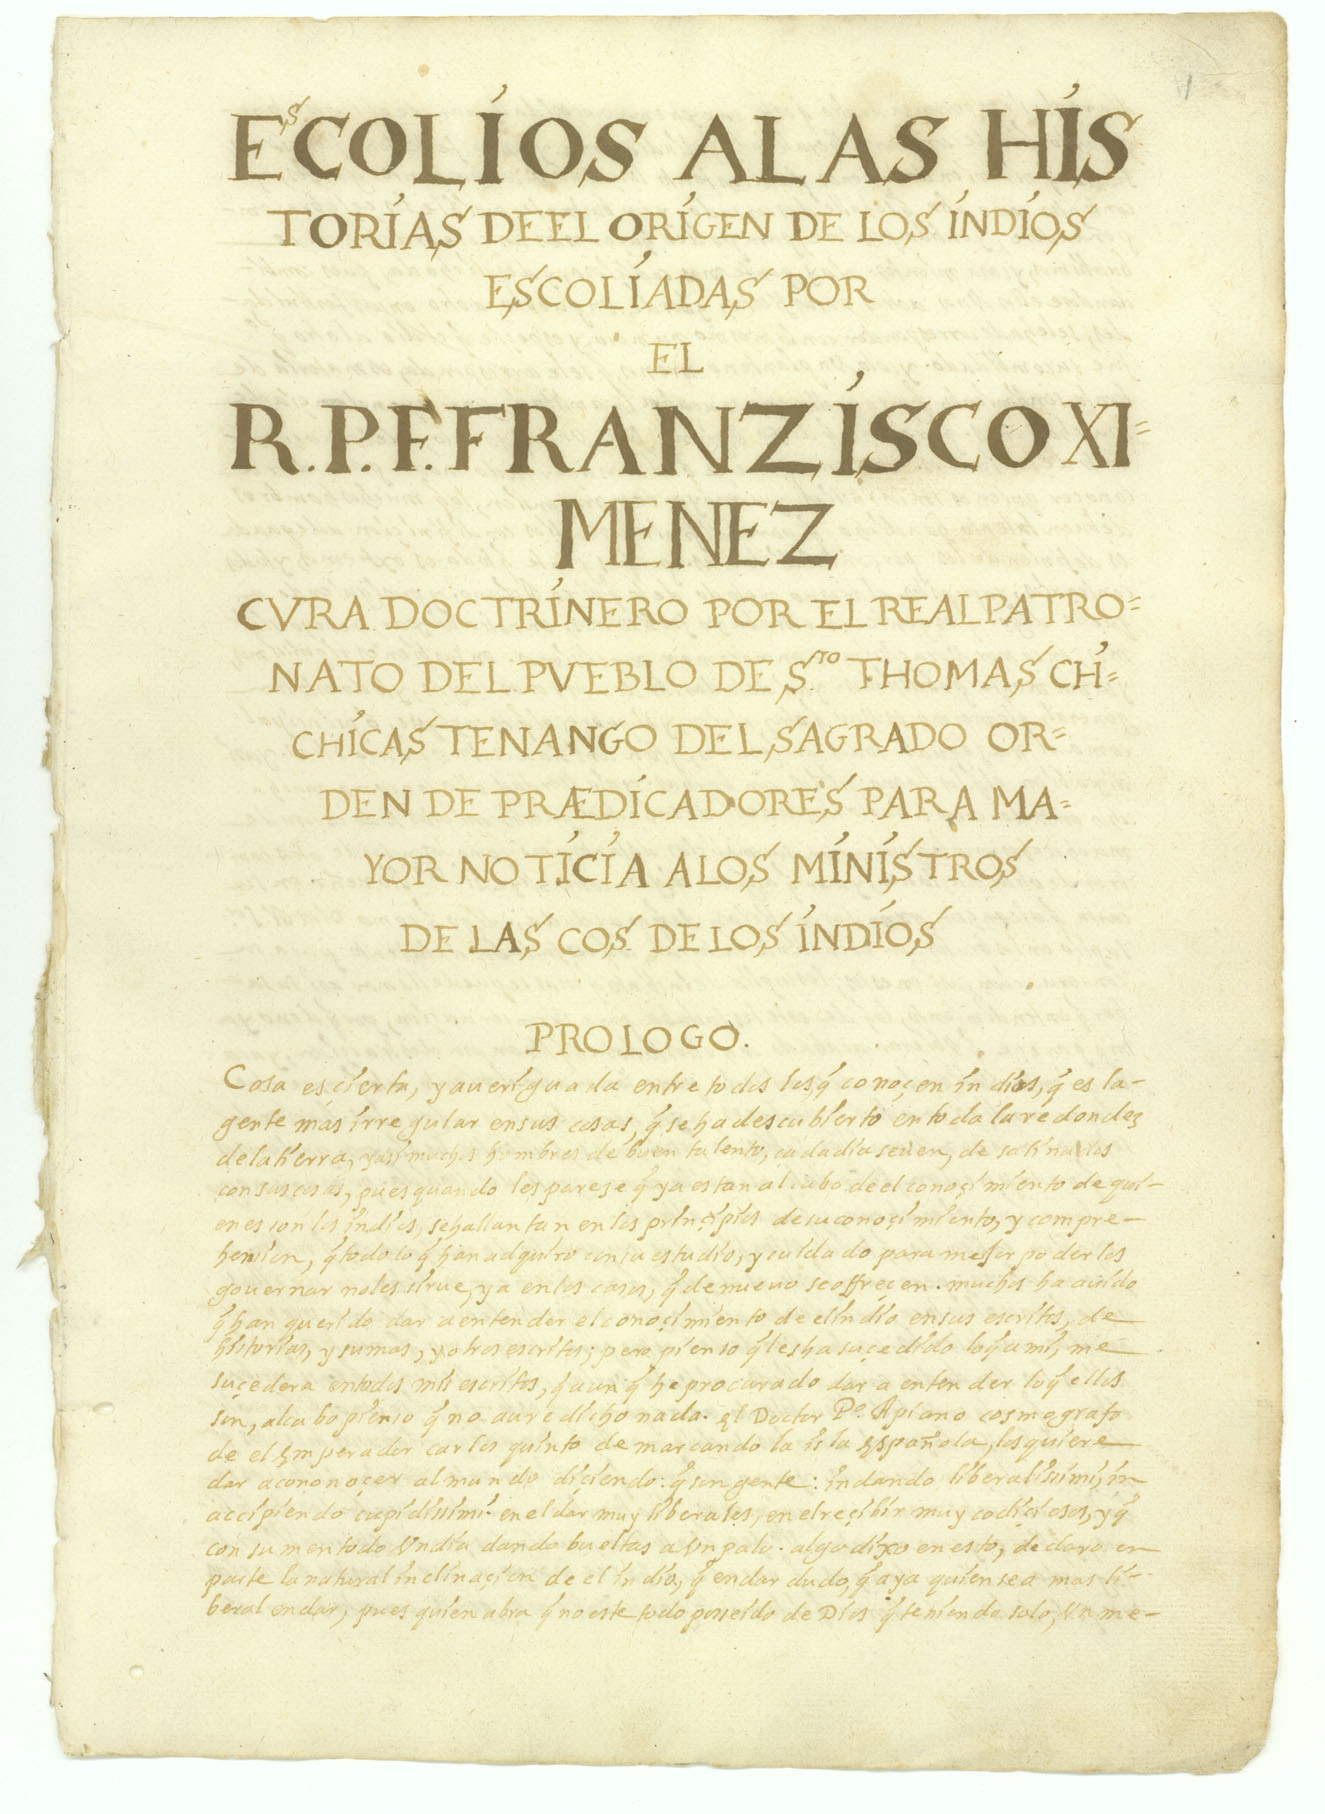 EsCOLIOS A LAS HIS
TORIAS DE EL ORIGEN DE LOS INDIOS
ESCOLIADAS POR
EL
R.P.F.FRANZISCO XI=
MENEZ
CVRA DOCTRINERO POR EL REAL PATRO=
NATO DEL PVEBLO DE S.TO THOMAS CHI=
CHICAS TENANGO DEL SAGRADO OR=
DEN DE PRÆDICADORES PARA MA=
YOR NOTICIA A LOS MINISTROS
DE LAS COS DE LOS INDIOS
PROLOGO.
Cosa es çierta, y averiguada entre todos los q̃ conoçen indios, q̃ es la-
gente mas irregular en sus cosas, q̃ se ha descubierto en toda la redondez
de la tierra, y assi muchos hombres de buen talento, cada dia se ven, desatinados
con sus cosas, pues quando les pareçe q̃ ya estan al cabo de el conoçimiento de qui-
enes son los indios, se hallan tan en los prinçipios de su conoçimiento, y compre-
hension, q̃ todo lo q̃ han adquiro con su estudio, y cuidado para mejor poderlos
governar no les sirve, ya en los casos, q̃ de nuevo se offreçen. muchos ha avido
q̃ han querido dar a entender el conoçimiento de el indio en sus escritos, de
historias, y sumas, y otros escritos; pero pienso q̃ les ha suçedido lo q̃ a mi, me
suçedera en todos mis escritos, q̃ aun q̃ he procurado dar a entender lo q̃ ellos
son, al cabo pienso q̃ no avre dicho nada. el Doctor Po. Apiano cosmografo
de el Emperador carlos quinto demarcando la isla Española, los quiere
dar a cononoçer al mundo diçiendo: q̃ son gente: in dando liberalissimi, in
accipiendo cupidissimi. en el dar muy liberales, en el reçibir muy codiçiosos, y q̃
con su mentodo Vn dia dando bueltas a Vn palo. algo dixo en esto, declaro en
parte la natural inclinaçion de el indio, q̃ en dar dudo, q̃ aya quien sea mas li-
beral en dar, pues quien abra q̃ no este todo posseido de Dios q̃ teniendo solo, Vn me-